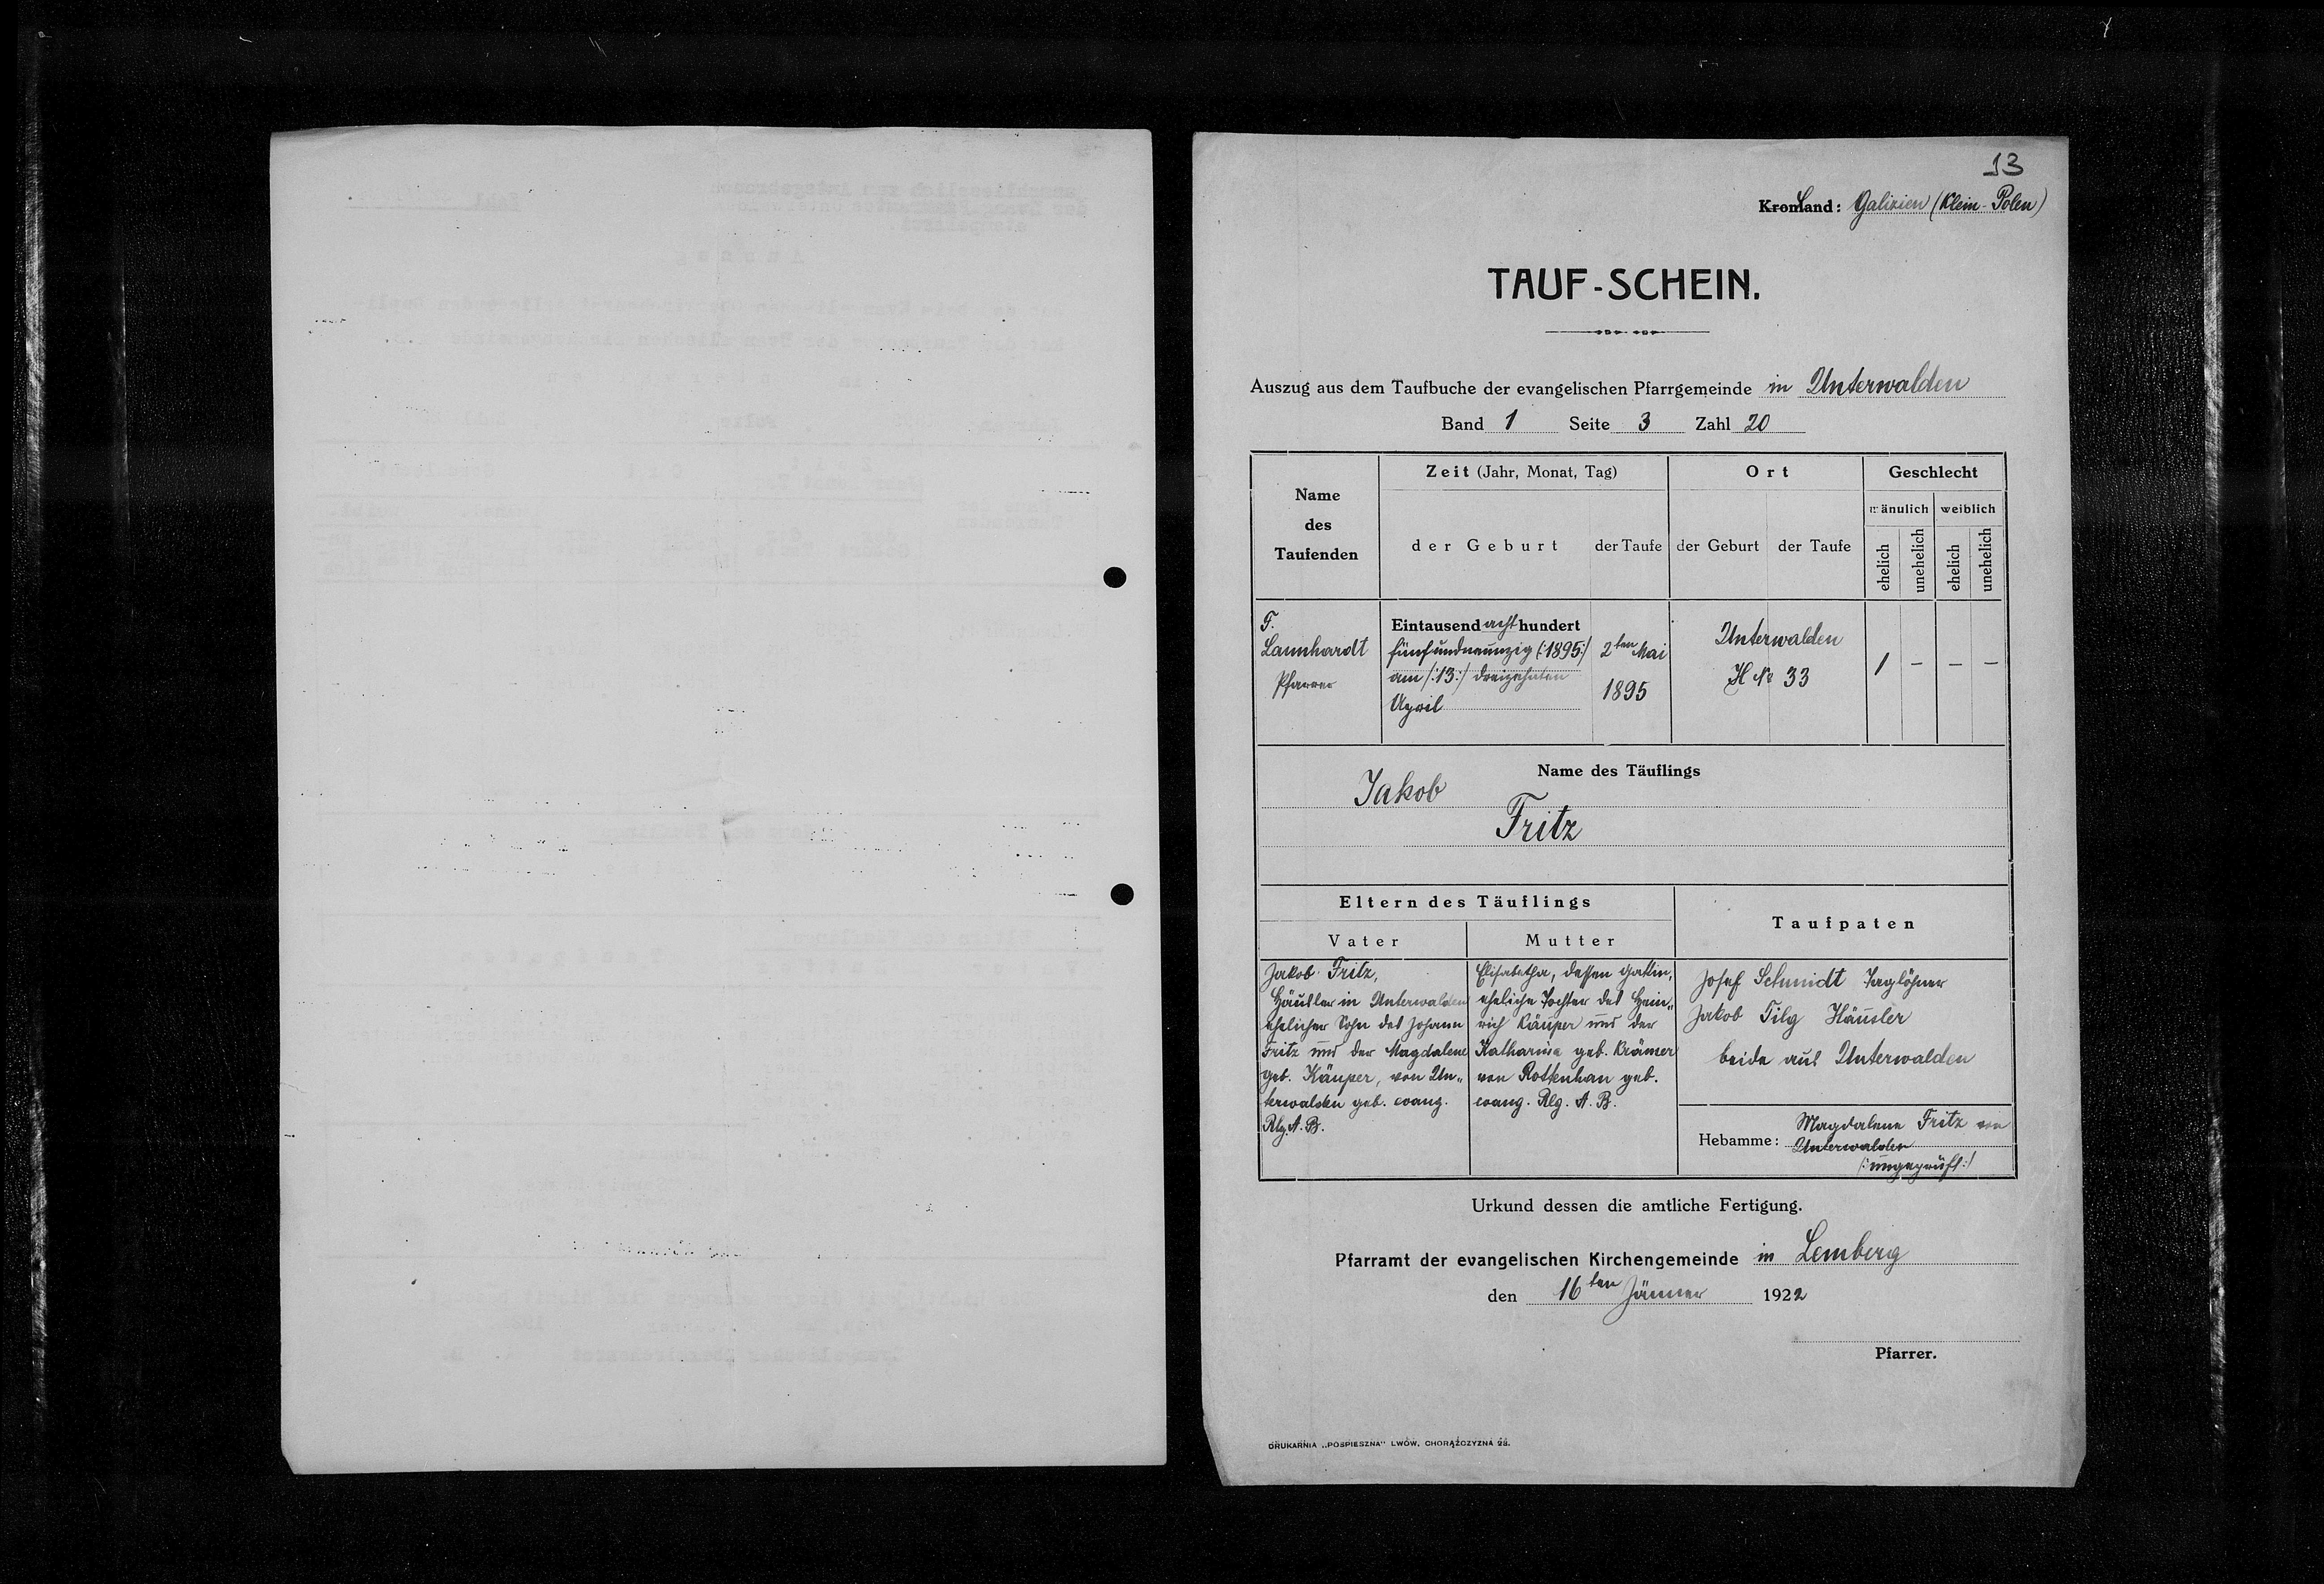 13
Kronland: Galizien (Klein-Polen)
TAUF-SCHEIN.
Auszug aus dem Taufbuche der evangelischen Pfarrgemeinde in Unterwalden
Band 1 Seite 3 Zahl 20
Name
des
Taufenden
Zeit (Jahr, Monat, Tag)
der Geburt
der Taufe
Ort
der Geburt
der Taufe
Geschlecht
mänulich
weiblich
ehelich
unehelich
ehelich
unehelich
F.
Launhardt
Pfarrer
Eintausend acht hundert
fünfundneunzig (:1895:)
am /:13:/ dreizehnten
April
2ten Mai
1895
Unterwalden
H № 33
1
–
–
–
Name des Täuflings
Jakob
Fritz
Eltern des Täuflings
Vater
Mutter
Taufpaten
Jakob Fritz,
Häusler in Unterwalden
ehelicher Sohn des Johann
Fritz und der Magdalene
geb. Käuper, von Un„
terwalden geb. evang.
Rlg. A. B.
Elisabetha, dessen Gattin,
eheliche Tochter des Hein„
rich Käuper und der
Katharina geb. Krämer
von Rottenhan geb.
evang. Rlg. A. B.
Josef Schmidt Taglöhner
Jakob Tilg Häusler
beide aus Unterwalden
Hebamme: Magdalene Fritz von
Unterwalden
(:ungeprüft:)
Urkund dessen die amtliche Fertigung.
Pfarramt der evangelischen Kirchengemeinde in Lemberg
den 16ten Jänner 1922
Pfarrer.
DRUKARNIA „POSPIESZNA" LWÓW, CHORĄŻCZYZNA 28.